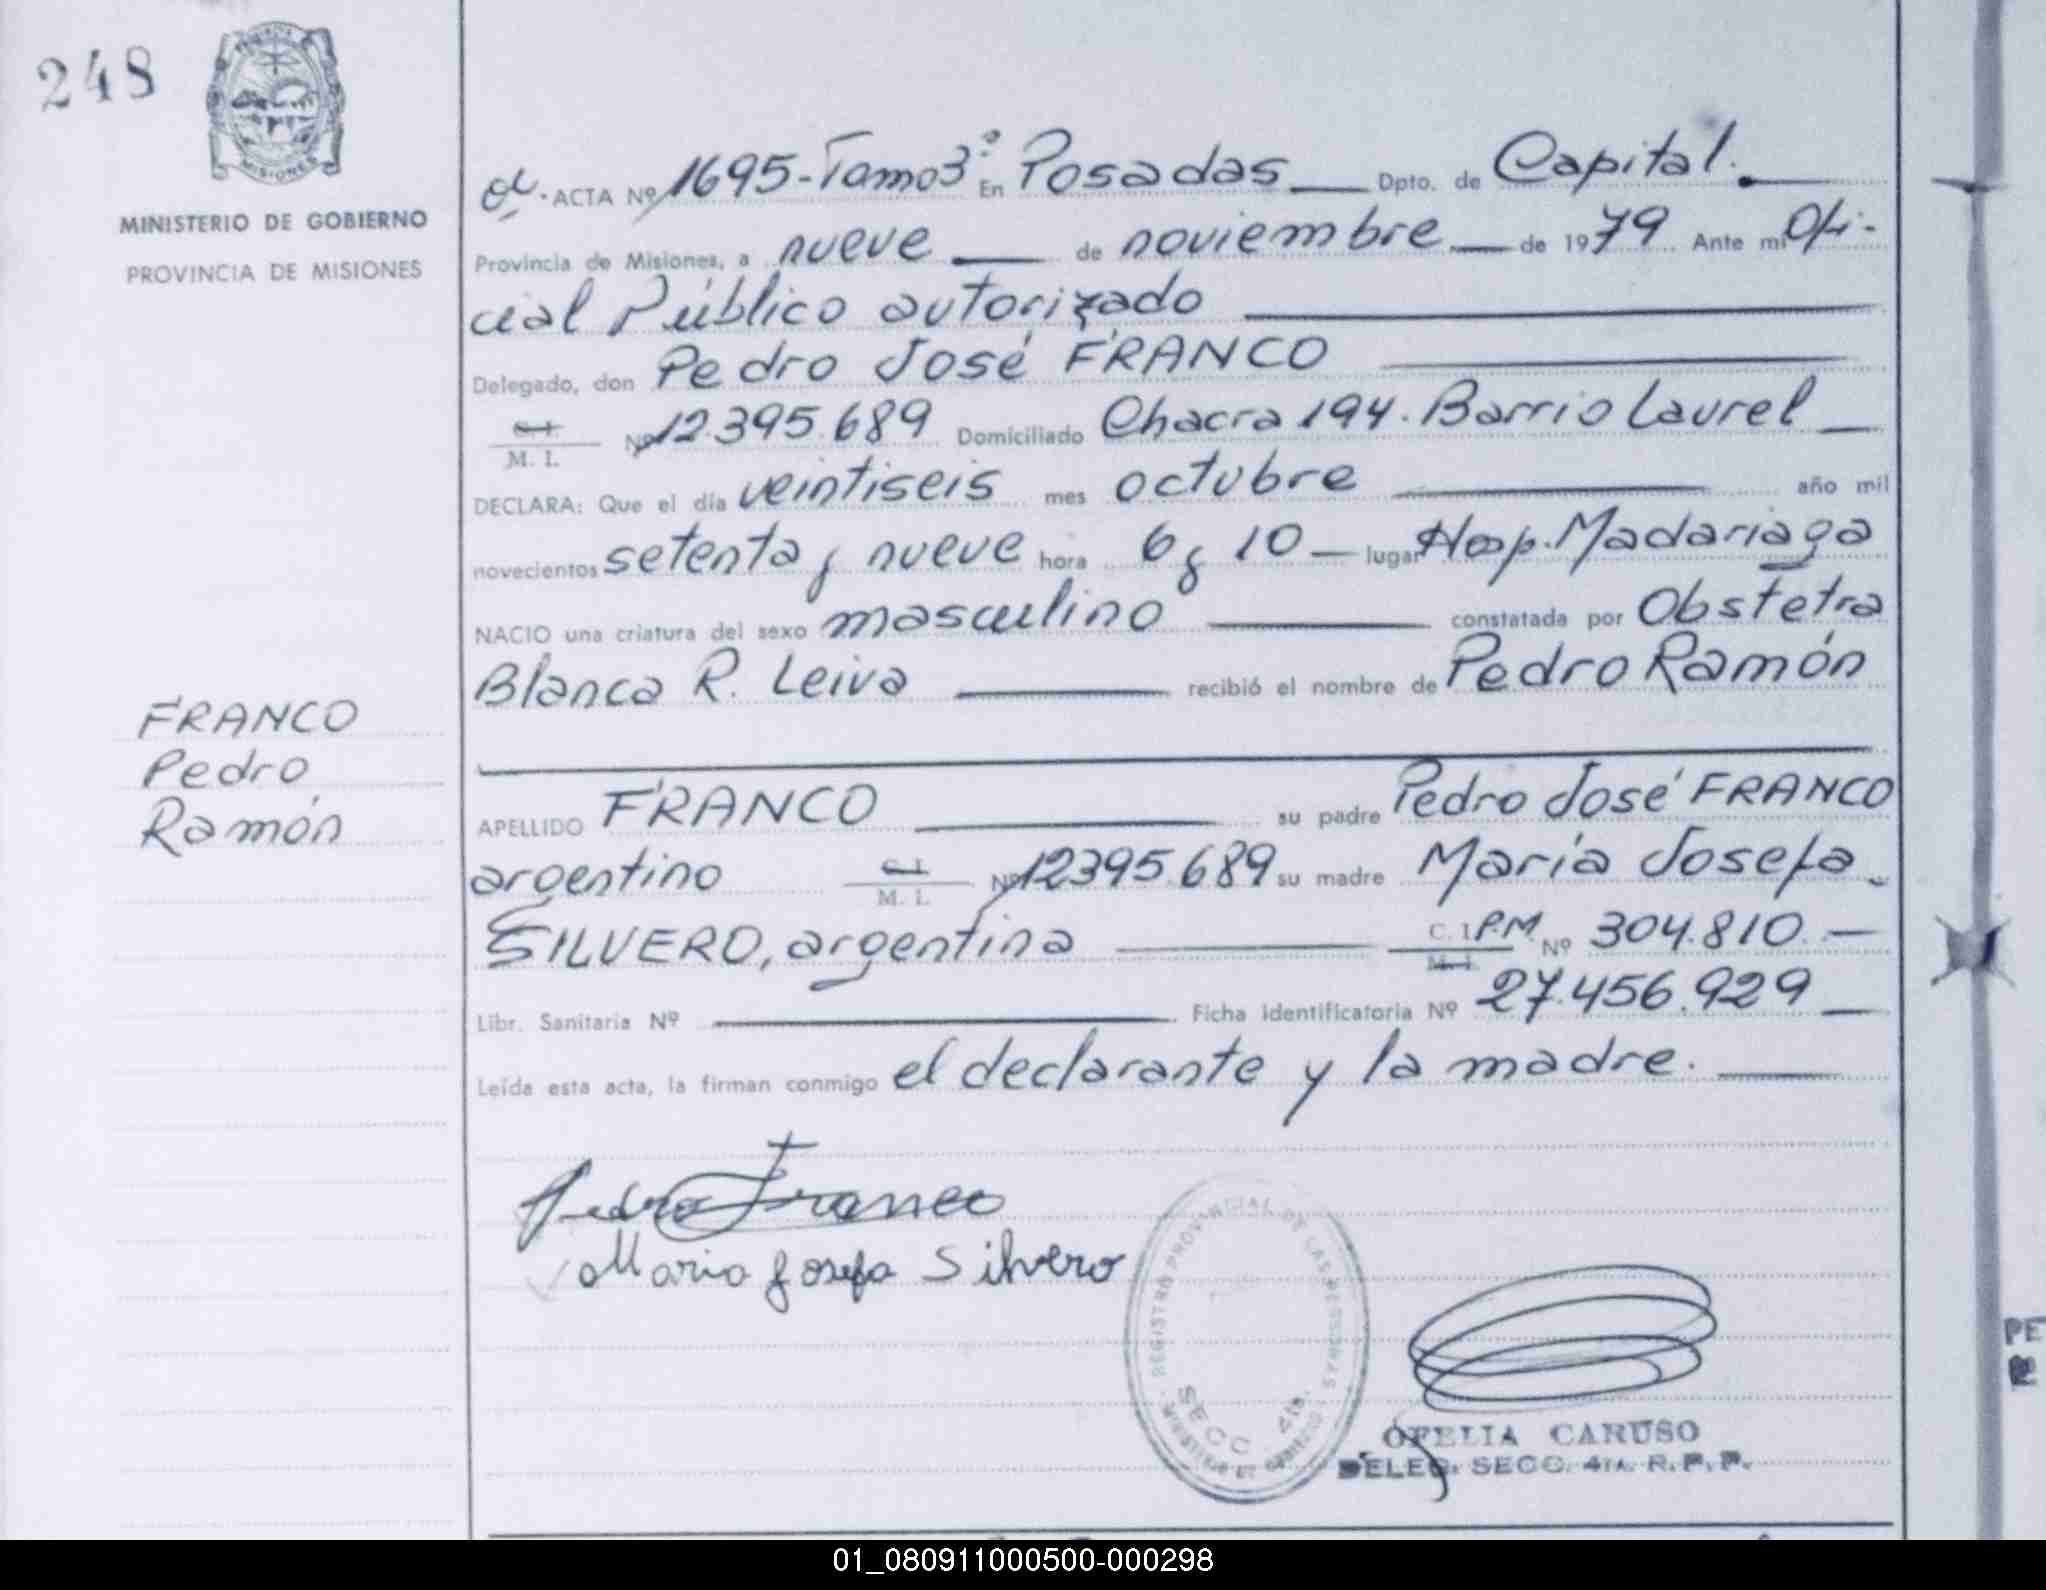 248
MISIONES
MINISTERIO DE GOBIERNO
PROVINCIA DE MISIONES
FRANCO
Pedro
Ramón
ACTA Nº 1695-Tomo 3º En Posadas Dpto. de Capital.
Provincia de Misiones, a nueve de noviembre de 1979 Ante mi Ofi-
cial Público autorizado
Delegado, don Pedro José FRANCO
C. I.
M. I. Nº 12.395.689 Domiciliado Chacra 194. Barrio Laurel
DECLARA: Que el día veintiseis mes octubre año mil
novecientos setenta y nueve hora 6 y 10 lugar Hosp. Madariaga
NACIO una criatura del sexo masculino constatada por Obstetra
Blanca R. Leiva recibió el nombre de Pedro Ramón
APELLIDO FRANCO su padre Pedro José FRANCO
argentino C. I.
M. I. Nº 12395.689 su madre María Josefa
SILVERO, argentina C. I. P.M. Nº 304.810.-
M. I.
Libr. Sanitaria Nº Ficha Identificatoria Nº 27.456.929
Leída esta acta, la firman conmigo el declarante y la madre.
Pedro Franco
Maria Josefa Silvero
REGISTRO PROVINCIAL DE LAS PERSONAS
MINISTERIO DE GOBIERNO
SECC 4ta.
OFELIA CARUSO
DELEG. SECC. 4TA. R. P. P.
PE
01_080911000500-000298